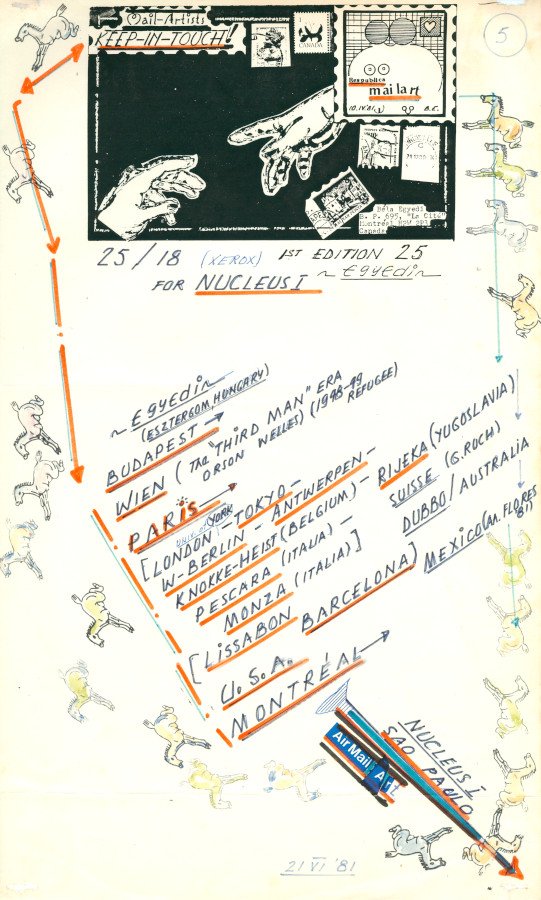 Mail-Artists
KEEP-IN-TOUCH!
CANADA
5
Respublica
mailart
10.IV.81
B.E.
Béla Egyedi
B. P. 695, "La Cité"
Montréal H2W 2P2
Canada
25/18 (XEROX) 1ST EDITION 25
~ Egyedi ~
FOR NUCLEUS I
~ Egyedi ~
(ESZTERGOM, HUNGARY)
BUDAPEST →
WIEN (THE "THIRD MAN" ERA
ORSON WELLES) (1948-49
REFUGEE)
PARIS →
[LONDON - TOKYO -
W-BERLIN - ANTWERPEN - RIJEKA (YUGOSLAVIA)
KNOKKE-HEIST (BELGIUM) - SUISSE (G. ROCH)
PESCARA (ITALIA) - DUBBO / AUSTRALIA
MONZA (ITALIA)] MEXICO (M. FLORES
81)
[LISSABON BARCELONA]
U.S.A.
MONTRÉAL →
NUCLEUS I
SAO PAULO
Air Mail Art
21 VI '81